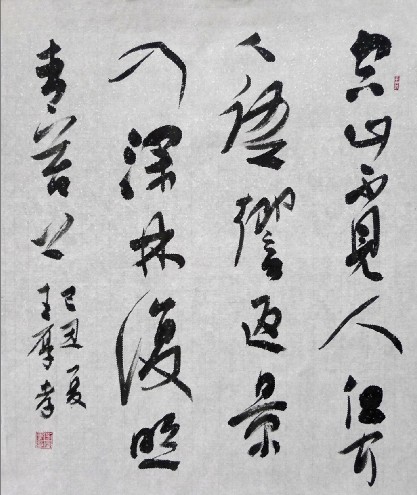 空山不見人但聞
人語響返景
入深林復照
青苔上
己丑夏